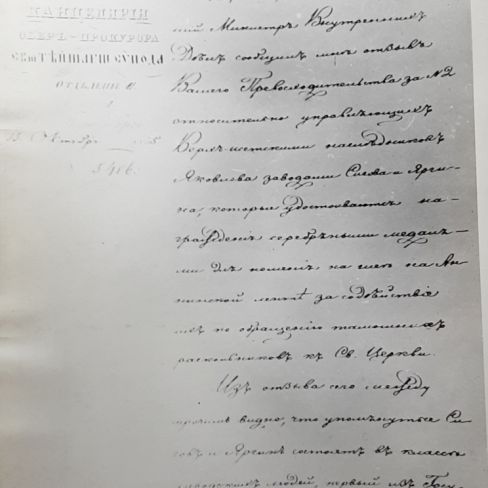 КАНЦЕЛЯРІЯ
ОБЕРЪ-ПРОКУРОРА
СВЯТѢЙШАГО СѴНОДА
ОТДѢЛЕНІЕ
Октября
5486.
Министръ Внутреннихъ
Дѣлъ сообщилъ мнѣ отзывъ
Вашего Превосходительства за №2
относительно управляющихъ
Верхъ-исетскими наслѣдниковъ
Яковлева заводами
на, которые удостоиваются на-
гражденія серебряными медаля-
ми для ношенія на шеѣ на Ан-
нинской лентѣ за содѣйствіе
ихъ по обращенію тамошнихъ
раскольниковъ къ Св. Церкви.
Изъ отзыва сего между
прочимъ видно, что упомянутые
состоятъ въ классѣ
людей, первый изъ